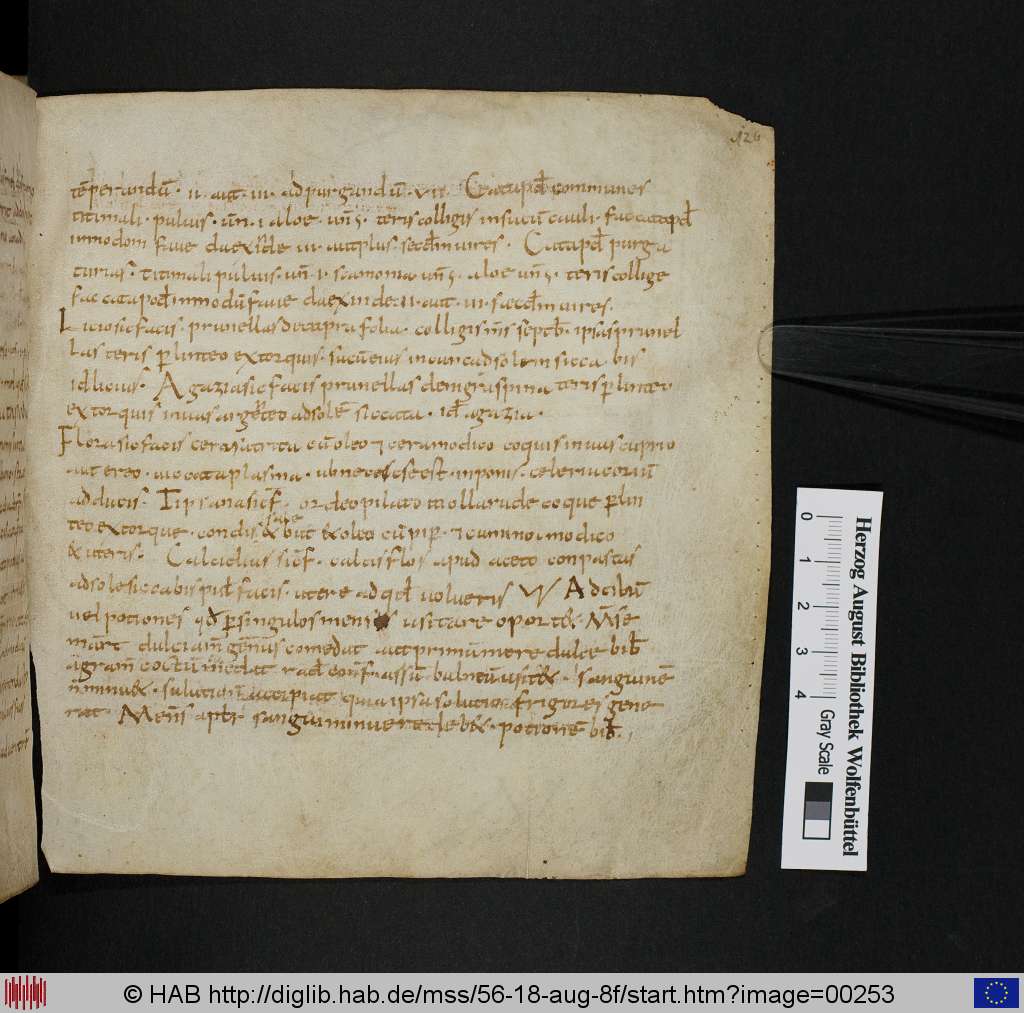 126
tēperandū · ii · aut · iii · ad purgandū · vii · Catapđ communes
titimali · puluis · uñ · i aloe · uñ s · teris colligis in sucū cauli · fac catapđ
in modom faue da exīde iii · aut plus · secđm uires · Catapđ purga
turias · titimali puluis · uñ · i · scamonia uñ s · aloe uñ s · teris collige
fac catapođ in modū faue da exinde · ii · aut · iii · sæcđm uires ·
Licio sic facis · prunellas de capra folia · colligis mīs septēb · ipsas prunel
las teris p linteo extorquis · sucū eius in cun ca ad sole in sicca · bis
id licius · Agazia sic facis prunellas de nigra spina teris p linteo
extorquis in uas argēteo ad solē siccata · iđ agazia ·
Flora sic facis cera sucrita cū oleo ⁊ cera modico coquis in uas cuprio
aut ereo · uice cataplasma · ubi necesse est · inponis · celeriu coriū
adducis · Tipsana sic f · ordeo pilato in olla rude coque p lin
teo extorque · condis & but & oleo cū pip · ⁊ cumino · modico
& uteris · Calcidius sic f · calcis flos apud aceto conpastas
ad sole sicca bis puł facis · utere ad qđ uolueris Ad cibū
uel potiones qđ p singulos menses usitare oport& · Mse
mart dulciam gēnus comedat aut primū mere dulce bib
agram coctū medat rađ conf assū balneū usit& · sanguinē
n minu& · solutionē accipiat quia ipsa solutio frigores gene
rat · Mens april sanguī minuere deb& · potionē bib ·
Herzog August Bibliothek Wolfenbüttel
0 1 2 3 4
Gray Scale
© HAB http://diglib.hab.de/mss/56-18-aug-8f/start.htm?image=00253